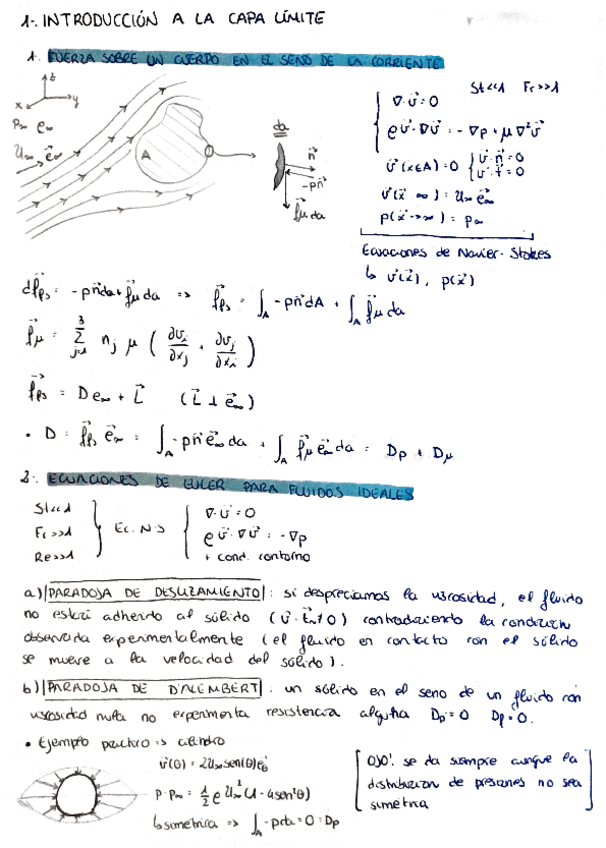 1-. INTRODUCCIÓN A LA CAPA LÍMITE
1. FUERZA SOBRE UN CUERPO EN EL SENO DE LA CORRIENTE
z
x y
P∞ ρ∞
U∞ e⃗∞
A
da
n⃗
-pn⃗
f⃗μ da
St<<1 Fr>>1
∇·v⃗ = 0
ρv⃗·∇v⃗ = -∇p + μ∇²v⃗
v⃗(x∈A) = 0 { v⃗·n⃗ = 0
v⃗·t⃗ = 0
v⃗(x⃗ ∞) = U∞ e⃗∞
p(x⃗→∞) = p∞
Ecuaciones de Navier-Stokes
↳ v⃗(x⃗), p(x⃗)
df⃗ps = -pn⃗da + f⃗μ da => f⃗ps = ∫A -pn⃗dA + ∫A f⃗μ da
f⃗μ = Σ j=1 3 nj μ ( ∂vi/∂xj + ∂vj/∂xi )
f⃗ps = D e∞ + L⃗ (L⃗ ⊥ e⃗∞)
• D = f⃗ps e⃗∞ = ∫A -pn⃗e⃗∞ da + ∫A f⃗μ e⃗∞ da = Dp + Dμ
2-. ECUACIONES DE EULER PARA FLUIDOS IDEALES
St<<1
Fr>>1 } Ec. N·S { ∇·v⃗ = 0
Re>>1 ρv⃗·∇v⃗ = -∇p
+ cond. contorno
a) PARADOJA DE DESLIZAMIENTO : si despreciamos la viscosidad, el fluido
no estará adherido al sólido (v⃗·t⃗≠0) contradiciendo la condición
observada experimentalmente (el fluido en contacto con el sólido
se mueve a la velocidad del sólido).
b) PARADOJA DE D'ALEMBERT . un sólido en el seno de un fluido con
viscosidad nula no experimenta resistencia alguna Dp = 0 Dp = 0.
• Ejemplo práctico => cilindro
v⃗(θ) = 2U∞ sen(θ) e⃗θ
p-p∞ = 1/2 ρ U∞² (1-4sen²θ)
↳ simétrica => ∫A -pnda = 0 = Dp
OJO! se da siempre aunque la
distribución de presiones no sea
simétrica